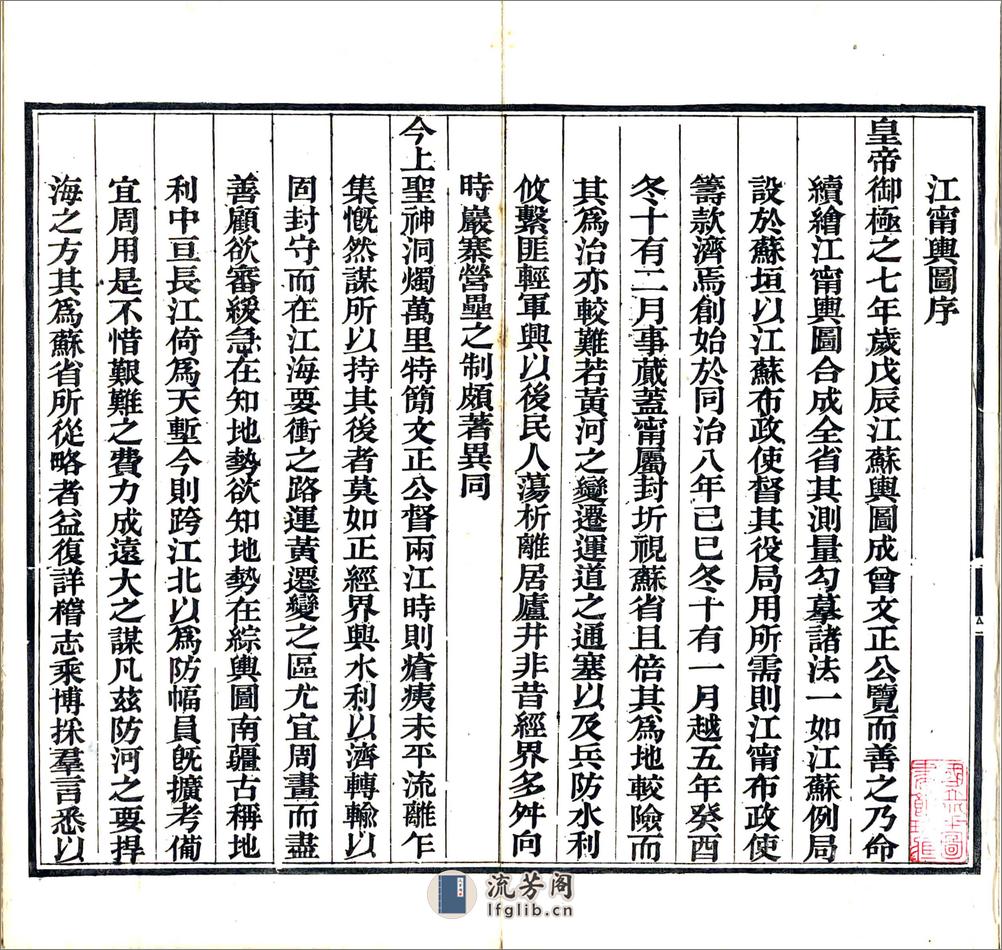 江甯輿圖序
皇帝御極之七年歲戊辰江蘇輿圖成曾文正公覽而善之乃命
續繪江甯輿圖合成全省其測量勾摹諸法一如江蘇例局
設於蘇垣以江蘇布政使督其役局用所需則江甯布政使
籌款濟焉創始於同治八年己巳冬十有一月越五年癸酉
冬十有二月事蕆蓋甯屬封圻視蘇省且倍其為地較險而
其為治亦較難若黃河之變遷運道之通塞以及兵防水利
攸繫匪輕軍興以後民人蕩析離居廬井非昔經界多舛向
時巖寨營壘之制頗著異同
今上聖神洞燭萬里特簡文正公督兩江時則瘡痍未平流離乍
集慨然謀所以持其後者莫如正經界興水利以濟轉輸以
固封守而在江海要衝之路運黃遷變之區尤宜周晝而盡
善顧欲審緩急在知地勢欲知地勢在綜輿圖南疆古稱地
利中亘長江倚為天塹今則跨江北以為防幅員旣擴考備
宜周用是不惜艱難之費力成遠大之謀凡茲防河之要捍
海之方其為蘇省所從略者益復詳稽志乘博採羣言悉以
流芳阁
lfglib.cn